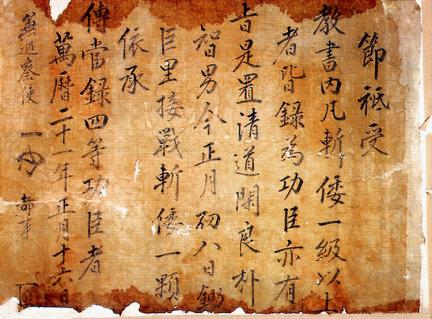 節祗受
教書内凡斬倭一級以上
者皆錄爲功臣亦有
旨是置清道閑良朴
智男今正月初八日
巨里接戰斬倭一顆
依承
傳當錄四等功臣者
萬曆二十一年正月十六日
兼巡察使